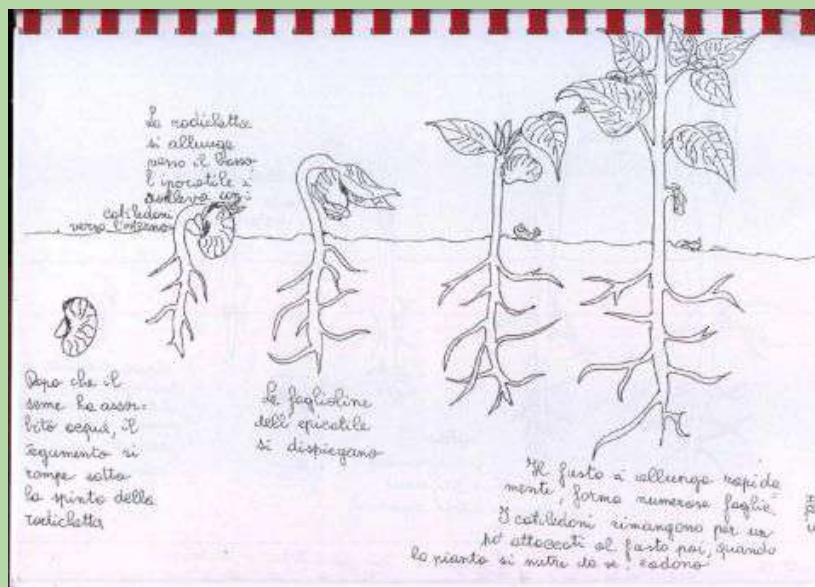 La radichetta
si allunga
verso il basso
l'ipocotile si
solleva con i
cotiledoni
verso l'esterno
Dopo che il
seme ha assor=
bito acqua, il
tegumento si
rompe sotto
la spinta della
radichetta
Le foglioline
dell'epicotile
si dispiegano
Il fusto si allunga rapida
mente, forma numerose foglie.
I cotiledoni rimangono per un
po' attaccati al fusto poi, quando
la pianta si nutre da se', cadono